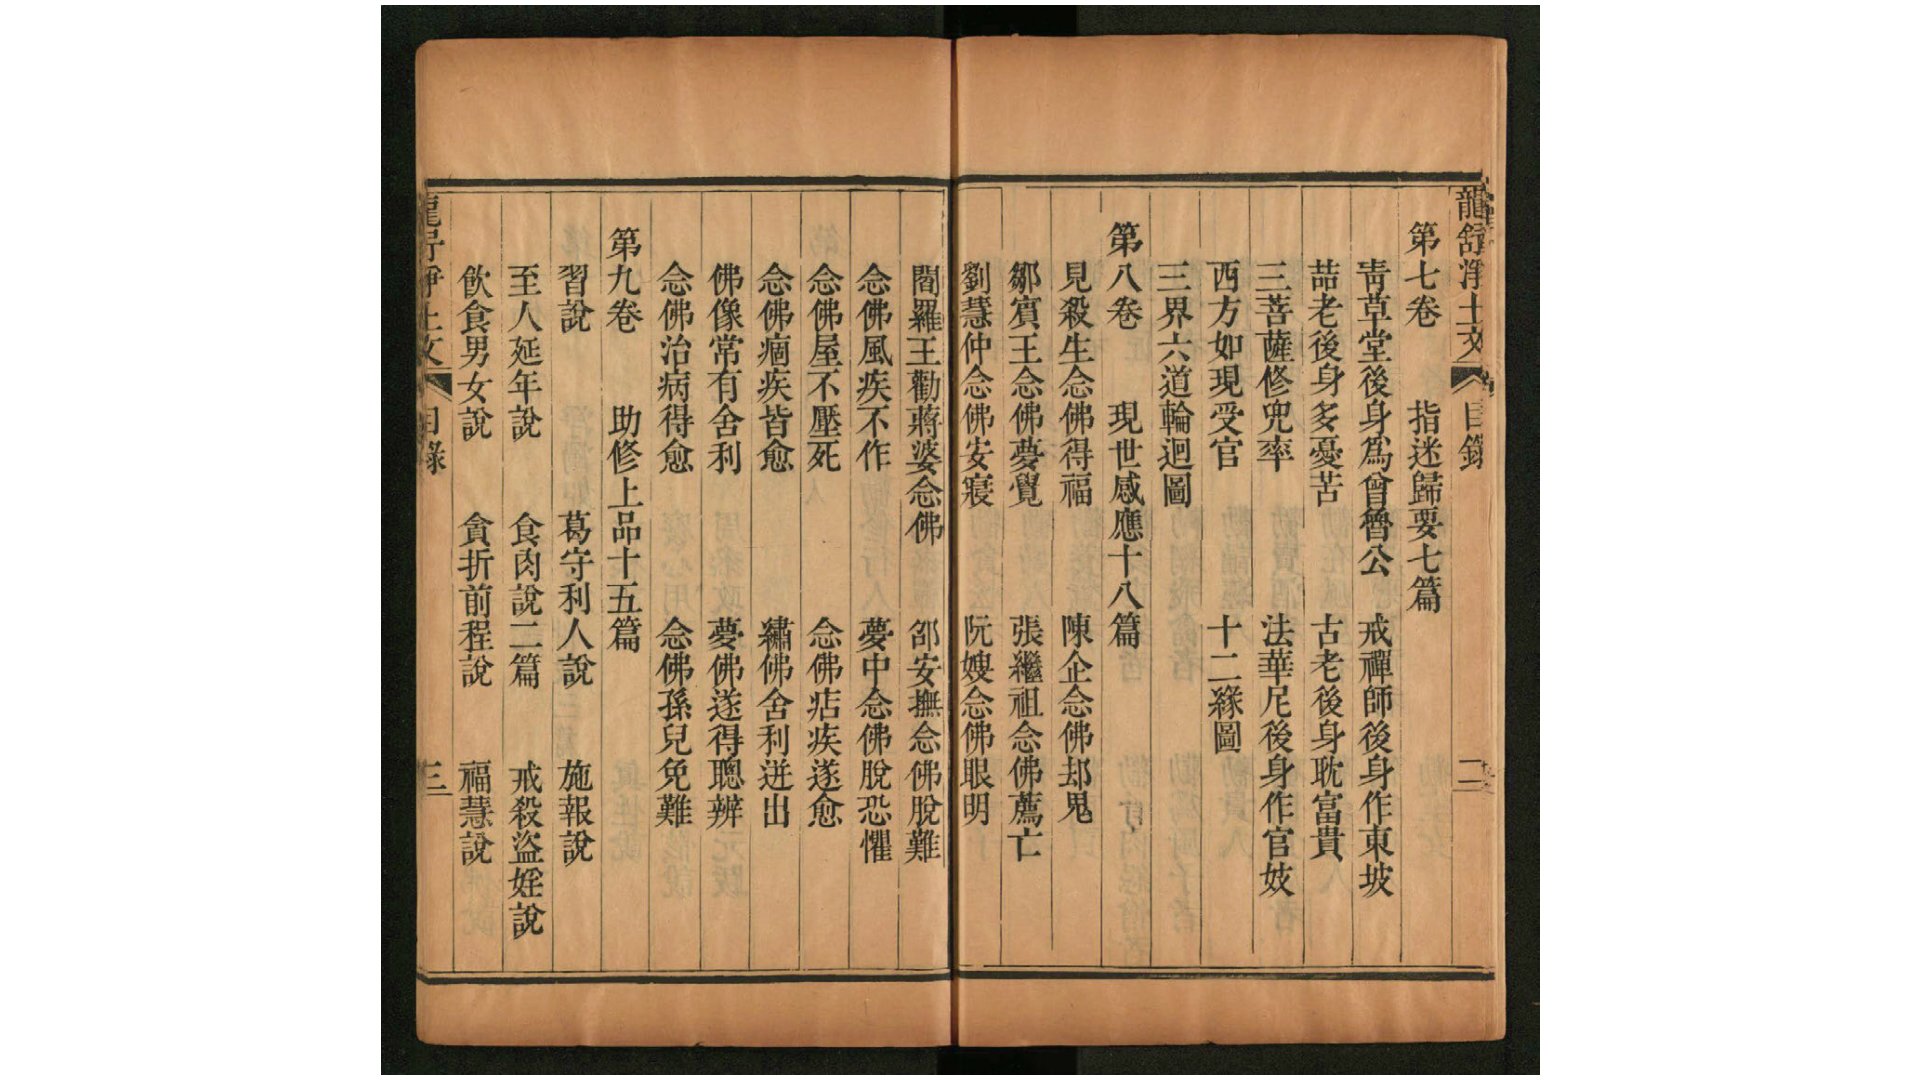 龍舒淨土文 目錄 二
第七卷 指迷歸要七篇
靑草堂後身爲曾魯公 戒禪師後身作東坡
喆老後身多憂苦 古老後身耽富貴
三菩薩修兜率 法華尼後身作官妓
西方如現受官 十二緣圖
三界六道輪迴圖
第八卷 現世感應十八篇
見殺生念佛得福 陳企念佛却鬼
鄒賓王念佛夢覺 張繼祖念佛薦亡
劉慧仲念佛安寢 阮嫂念佛眼明
閻羅王勸蔣婆念佛 邵安撫念佛脫難
念佛風疾不作 夢中念佛脫恐懼
念佛屋不壓死 念佛痁疾遂愈
念佛痼疾皆愈 繡佛舍利迸出
佛像常有舍利 夢佛遂得聰辨
念佛治病得愈 念佛孫兒免難
第九卷 助修上品十五篇
習說 葛守利人說 施報說
至人延年說 食肉說二篇 戒殺盜婬說
飲食男女說 貪折前程說 福慧說
龍舒淨土文 目錄 三